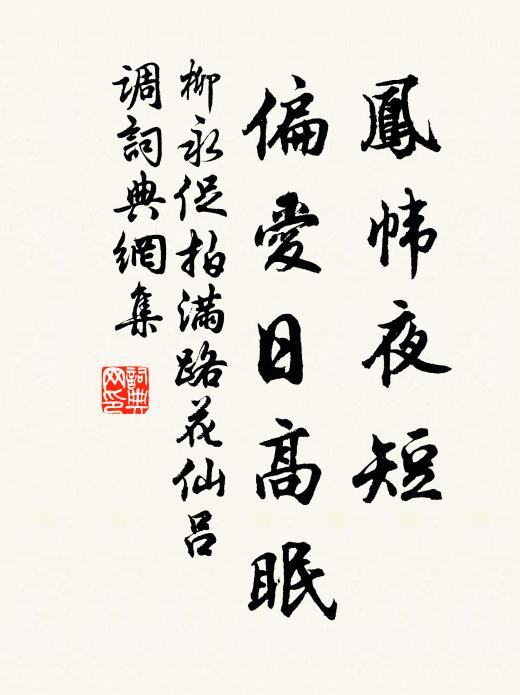 鳳幃夜短
偏愛日高眠
柳永促拍滿路花仙呂
調詞典網集
詞典网印